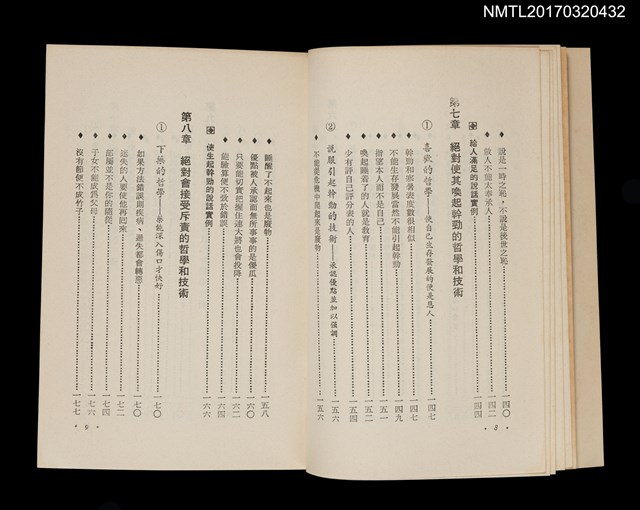 NMTL20170320432
◆ 說是一時之恥，不說是後世之恥……一四〇
◆ 教人不能太奉承人……一四二
✥ 給人滿足的說話實例……一四四
第七章 絕對使其喚起幹勁的哲學和技術
① 喜歡的哲學——使自己生存發展的便是恩人……一四七
◆ 幹勁和寒暑表度數很相似……一四八
◆ 不能生存發展當然不能引起幹勁……一四九
◆ 指望本人而不是自己……一五一
◆ 喚起睡着了的人就是教育……一五二
◆ 少有評自己評分表的人……一五四
② 說服引起幹勁的技術——承認優點並加以強調……一五六
◆ 不能從危機中爬起來是廢物……一五六
• 8 •
◆ 睡醒了不起來也是廢物……一五八
◆ 優點被人承認而無所事事的是傻瓜……一六〇
◆ 只要能切實把握住連大將也會投降……一六二
◆ 能臉算便不致於錯誤……一六四
✥ 使生起幹勁的說話實例……一六六
第八章 絕對會接受斥責的哲學和技術
① 下藥的哲學——藥能深入傷口才快好……一七〇
◆ 如果方法錯誤則疾病、過失都會轉惡……一七〇
◆ 迷失的人要使他再回來……一七二
◆ 部屬並不是你的隨從……一七四
◆ 子女不能成為父母……一七六
◆ 沒有節便不成竹子……一七七
• 9 •